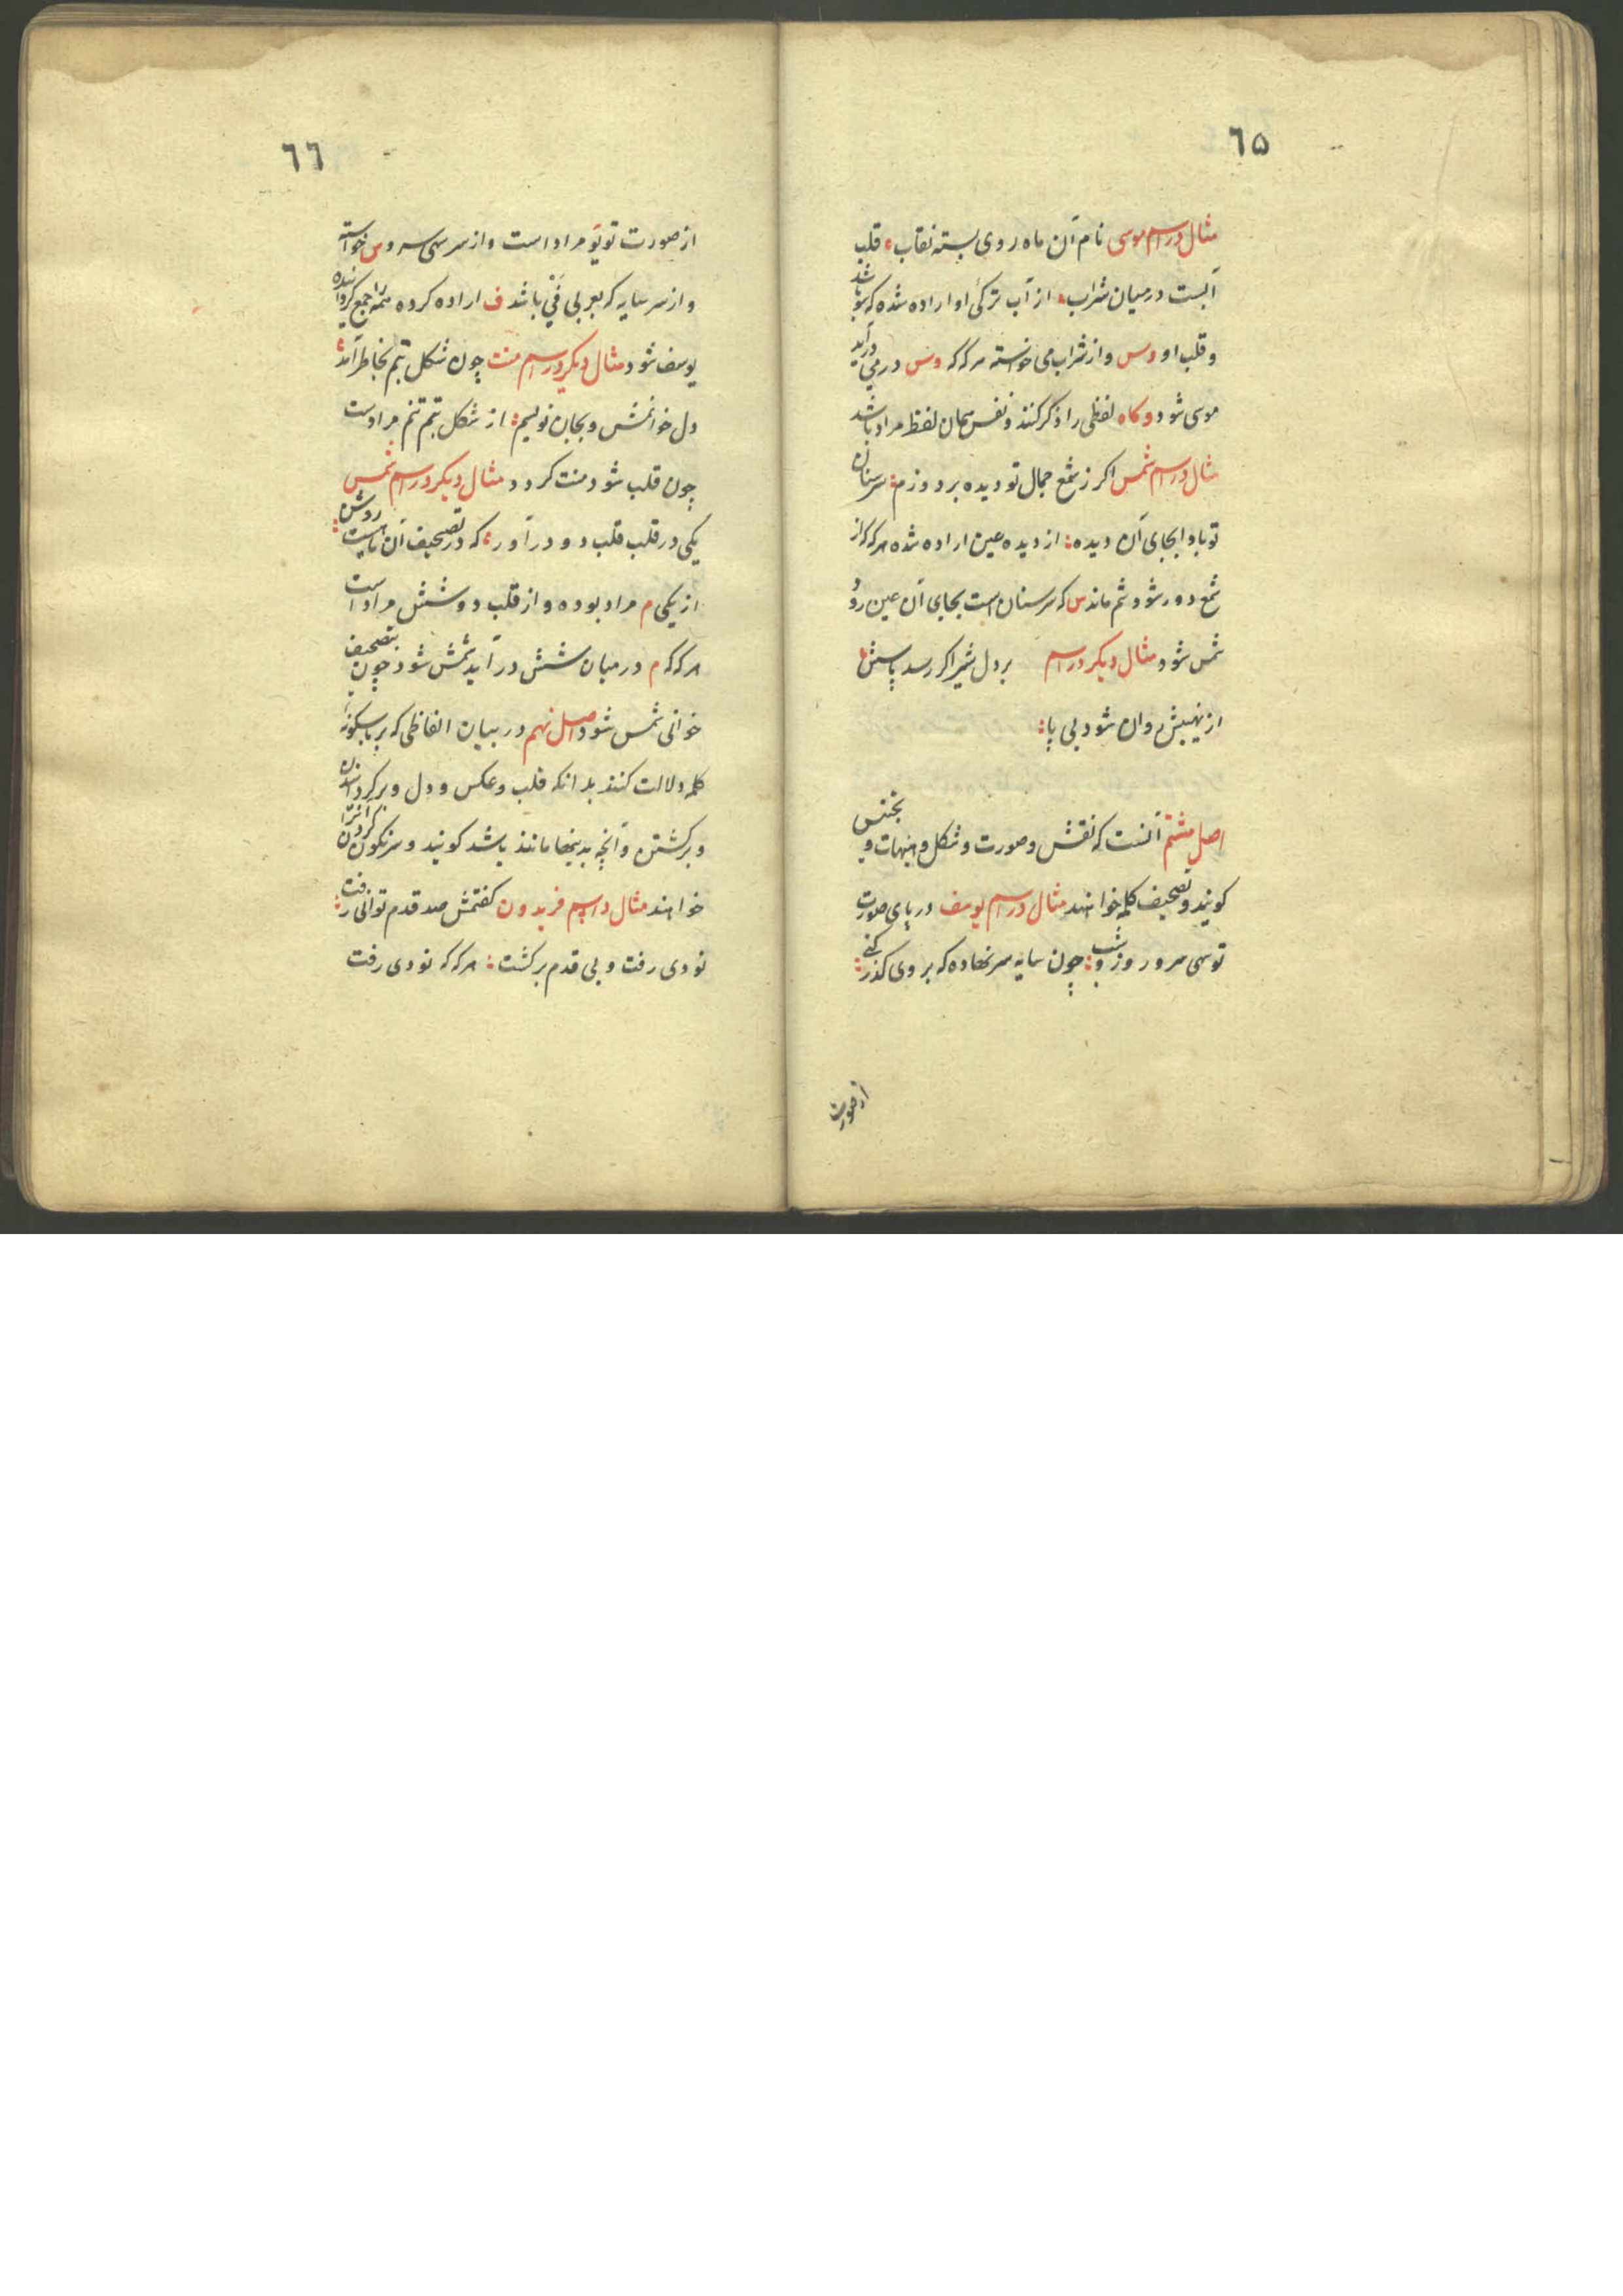 ٦۵
مثال در اسم موسی نام آن ماه روی بسته نقاب قلب
آبست در میان شراب از آب ترکئ او اراده شده که سو باشد
و قلب او وس و از شراب می خواسته هر که که وس در می درآید
موسی شود و کاه لفظی را ذکر کنند و نفس همان لفظ مراد باشد
مثال در اسم شمس اکر ز شمع جمال تو دیده بر دوزم سر سنان
تو بادا بجای آن دیده از دیده عین اراده شده هر که که از
شمع دور شود شم ماند س که سر سنان است بجای آن عین رود
شمس شود مثال دیکر در اسم بر دل شیر اکر رسد پاسش
از نهیبش روان شود بی پا
اصل هشتم آنست که نقش و صورت و شکل و
کویند و تصحیف کلمه خواهند مثال در اسم یوسف در پای صورت
تو سهی سرو روز و شب چون سایه سر نهاده که بروی کذر کنے
از صورت
٦٦
از صورت تو یو مراد است و از سر سهی سرو س خواسته
و از سر سایه که بعربی فَیْ باشد ف اراده کرده همه را جمع کردانیده
یوسف شود مثال دیکر در اسم منت چون شکل تنم بخاطر آمد
دل خوانمش و بجان نویسم از شکل تنم تنم مرادست
چون قلب شود منت کردد مثال دیکر در اسم شمس
یکی در قلب قلب دو در آور که در تصحیف آن نامیست روشن
از یکی م مراد بوده و از قلب دو شش مراد است
هر که که م در میان شش در آید شمش شود چون بتصحیف
خوانی شمس شود اصل نهم در بیان الفاظی که بر باسکونهٔ
کلمه دلالت کنند بدانکه قلب و عکس و دل و بر کردانیدن
و برکشتن و آنچه بدینها مانند باشد کویند و سرنکون کردن آنرا
خواهند مثال در اسم فریدون کفتمش صد قدم توانی رفت
نودی رفت و بی قدم برکشت هر که که نودی رفت